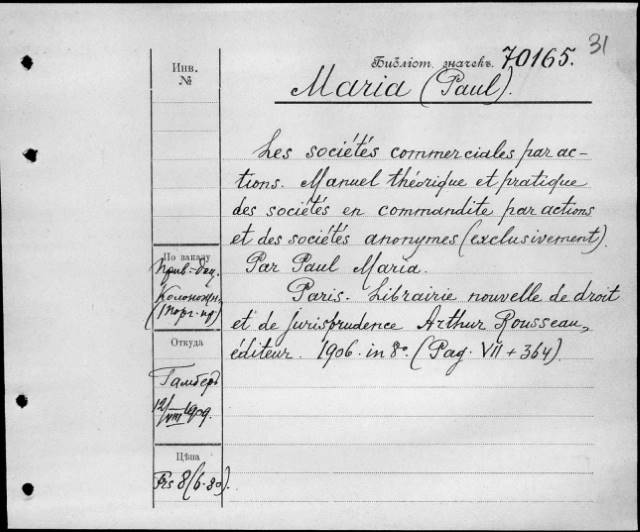 31
Инв.
№
Библіот. значекъ. 70165.
Maria (Paul).
Les sociétés commerciales par ac-
tions. Manuel théorique et pratique
des sociétés en commandite par actions
et des sociétés anonymes (exclusivement).
Par Paul Maria.
Paris. Librairie nouvelle de droit
et de jurisprudence Arthur Rousseau,
éditeur. 1906. in 8º. (Pag. VII + 364)
По заказу
Прив.-доц.
(Торг. пр)
Откуда
12/VIII 1909.
Цѣна
Frs 8 (6.80).